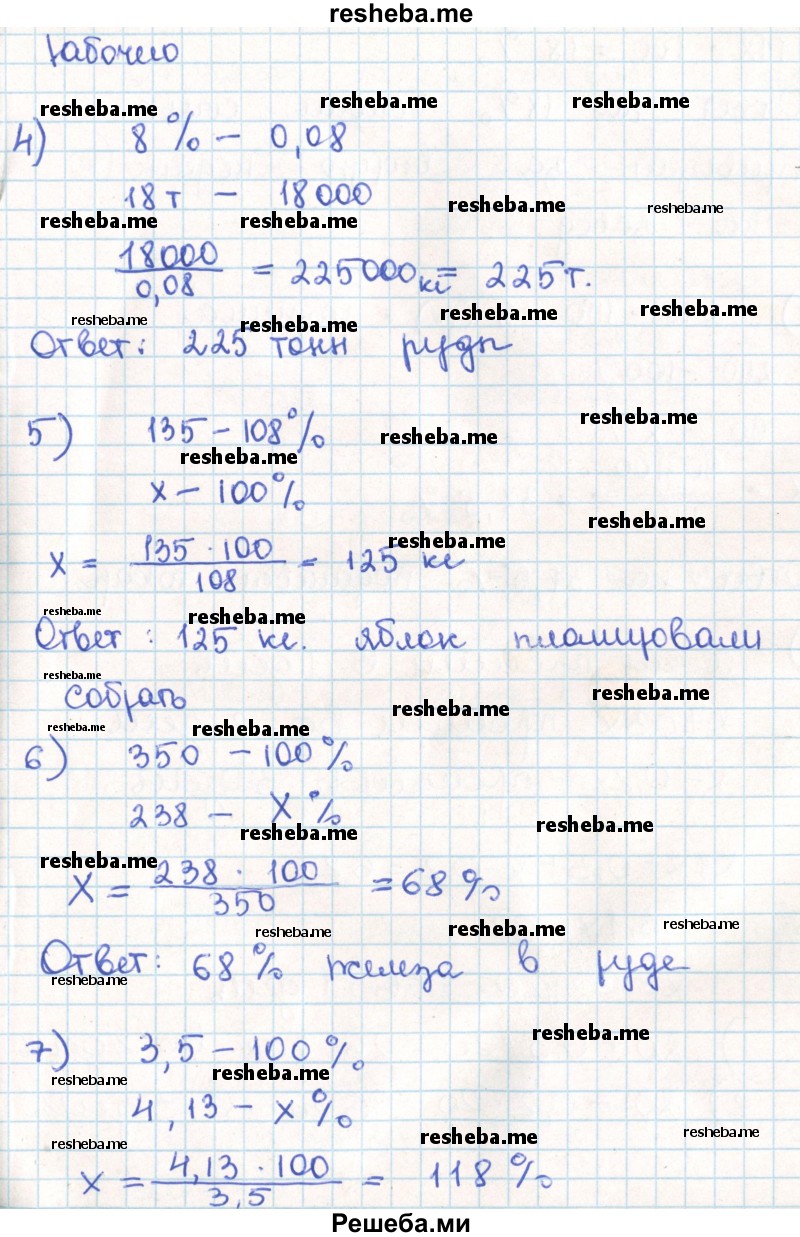 resheba.me
resheba.me resheba.me resheba.me
4) 8 % – 0,08
18 т – 18 000
resheba.me resheba.me
resheba.me resheba.me
18000/0,08 = 225000 кг = 225 т.
resheba.me resheba.me resheba.me resheba.me
Ответ: 225 тонн руды
5) 135 – 108 %
resheba.me resheba.me resheba.me
x – 100 %
resheba.me
x = 135 · 100/108 = 125 кг
resheba.me
resheba.me resheba.me
Ответ: 125 кг. яблок планировали
resheba.me
собрать
resheba.me resheba.me
resheba.me resheba.me
6) 350 – 100 %
238 – X %
resheba.me resheba.me
resheba.me
X = 238 · 100/350 = 68 %
resheba.me resheba.me resheba.me
Ответ: 68 % железа в руде
resheba.me
resheba.me
7) 3,5 – 100 %
resheba.me resheba.me
4,13 – x %
resheba.me resheba.me resheba.me
x = 4,13 · 100/3,5 = 118 %
Решеба.ми